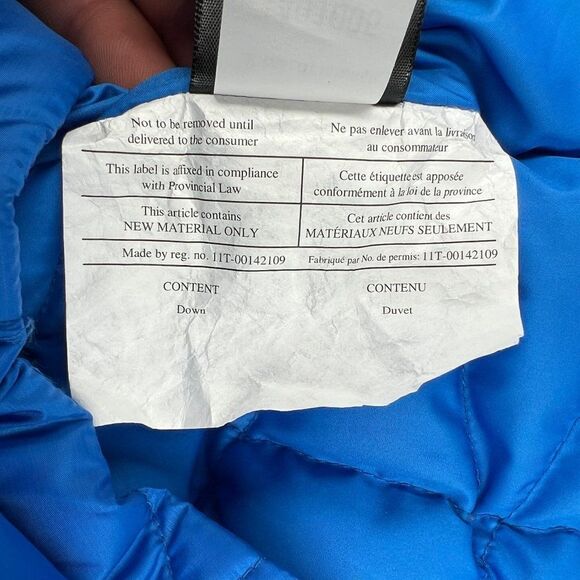 Not to be removed until
delivered to the consumer
Ne pas enlever avant la livraison
au consommateur
This label is affixed in compliance
with Provincial Law
Cette étiquette est apposée
conformément à la loi de la province
This article contains
NEW MATERIAL ONLY
Cet article contient des
MATÉRIAUX NEUFS SEULEMENT
Made by reg. no. 11T-00142109
Fabriqué par No. de permis: 11T-00142109
CONTENT
Down
CONTENU
Duvet